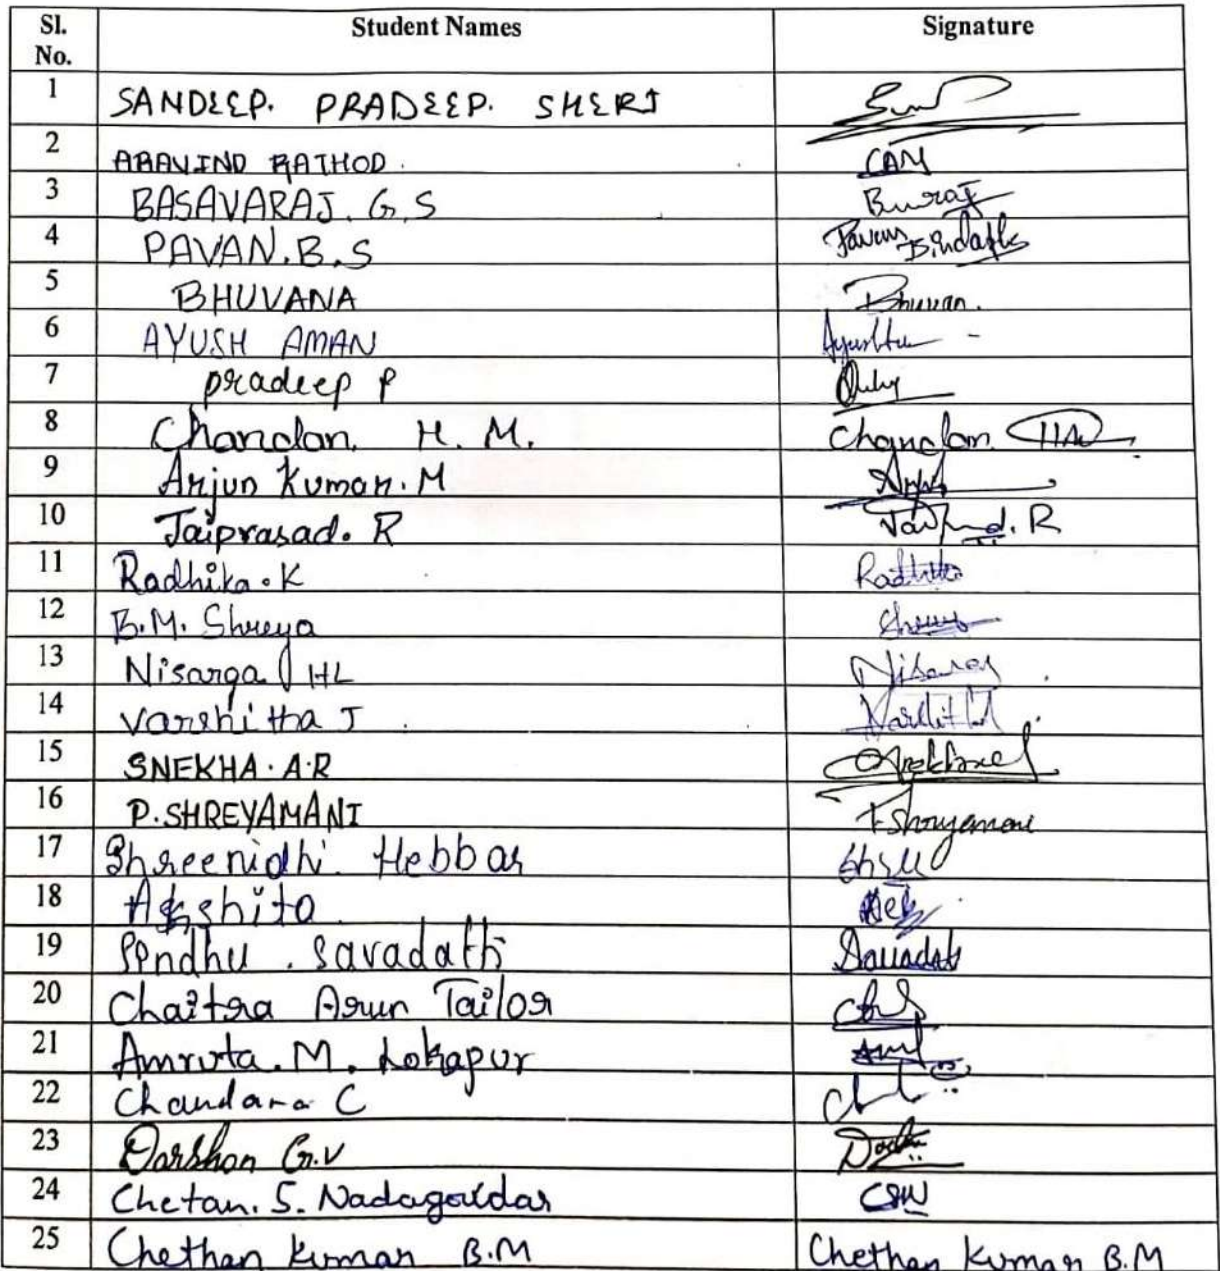 Sl. No. Student Names Signature
1 SANDEEP. PRADEEP. SHERI
2 ARAVIND RATHOD. CAM
3 BASAVARAJ. G.S Buraj
4 PAVAN.B.S Pavan
5 BHUVANA Bhuvan.
6 AYUSH AMAN
7 pradeep P
8 Chandan. H. M. Chandan
9 Arjun Kumar. M
10 Jaiprasad. R R
11 Radhika. K Radhika
12 B.M. Shreya
13 Nisarga HL Nisarga
14 Varshitha J
15 SNEKHA. A.R
16 P. SHREYAMANI P Shreyamani
17 Shreenidhi. Hebbar
18 Akshita
19 Sindhu . Savadatti Savadatti
20 Chaitra Arun Tailor
21 Amruta. M. Lokapur
22 Chandana C
23 Darshan G.V
24 Chetan. S. Nadagoudar
25 Chethan Kumar B.M Chethan Kumar B.M